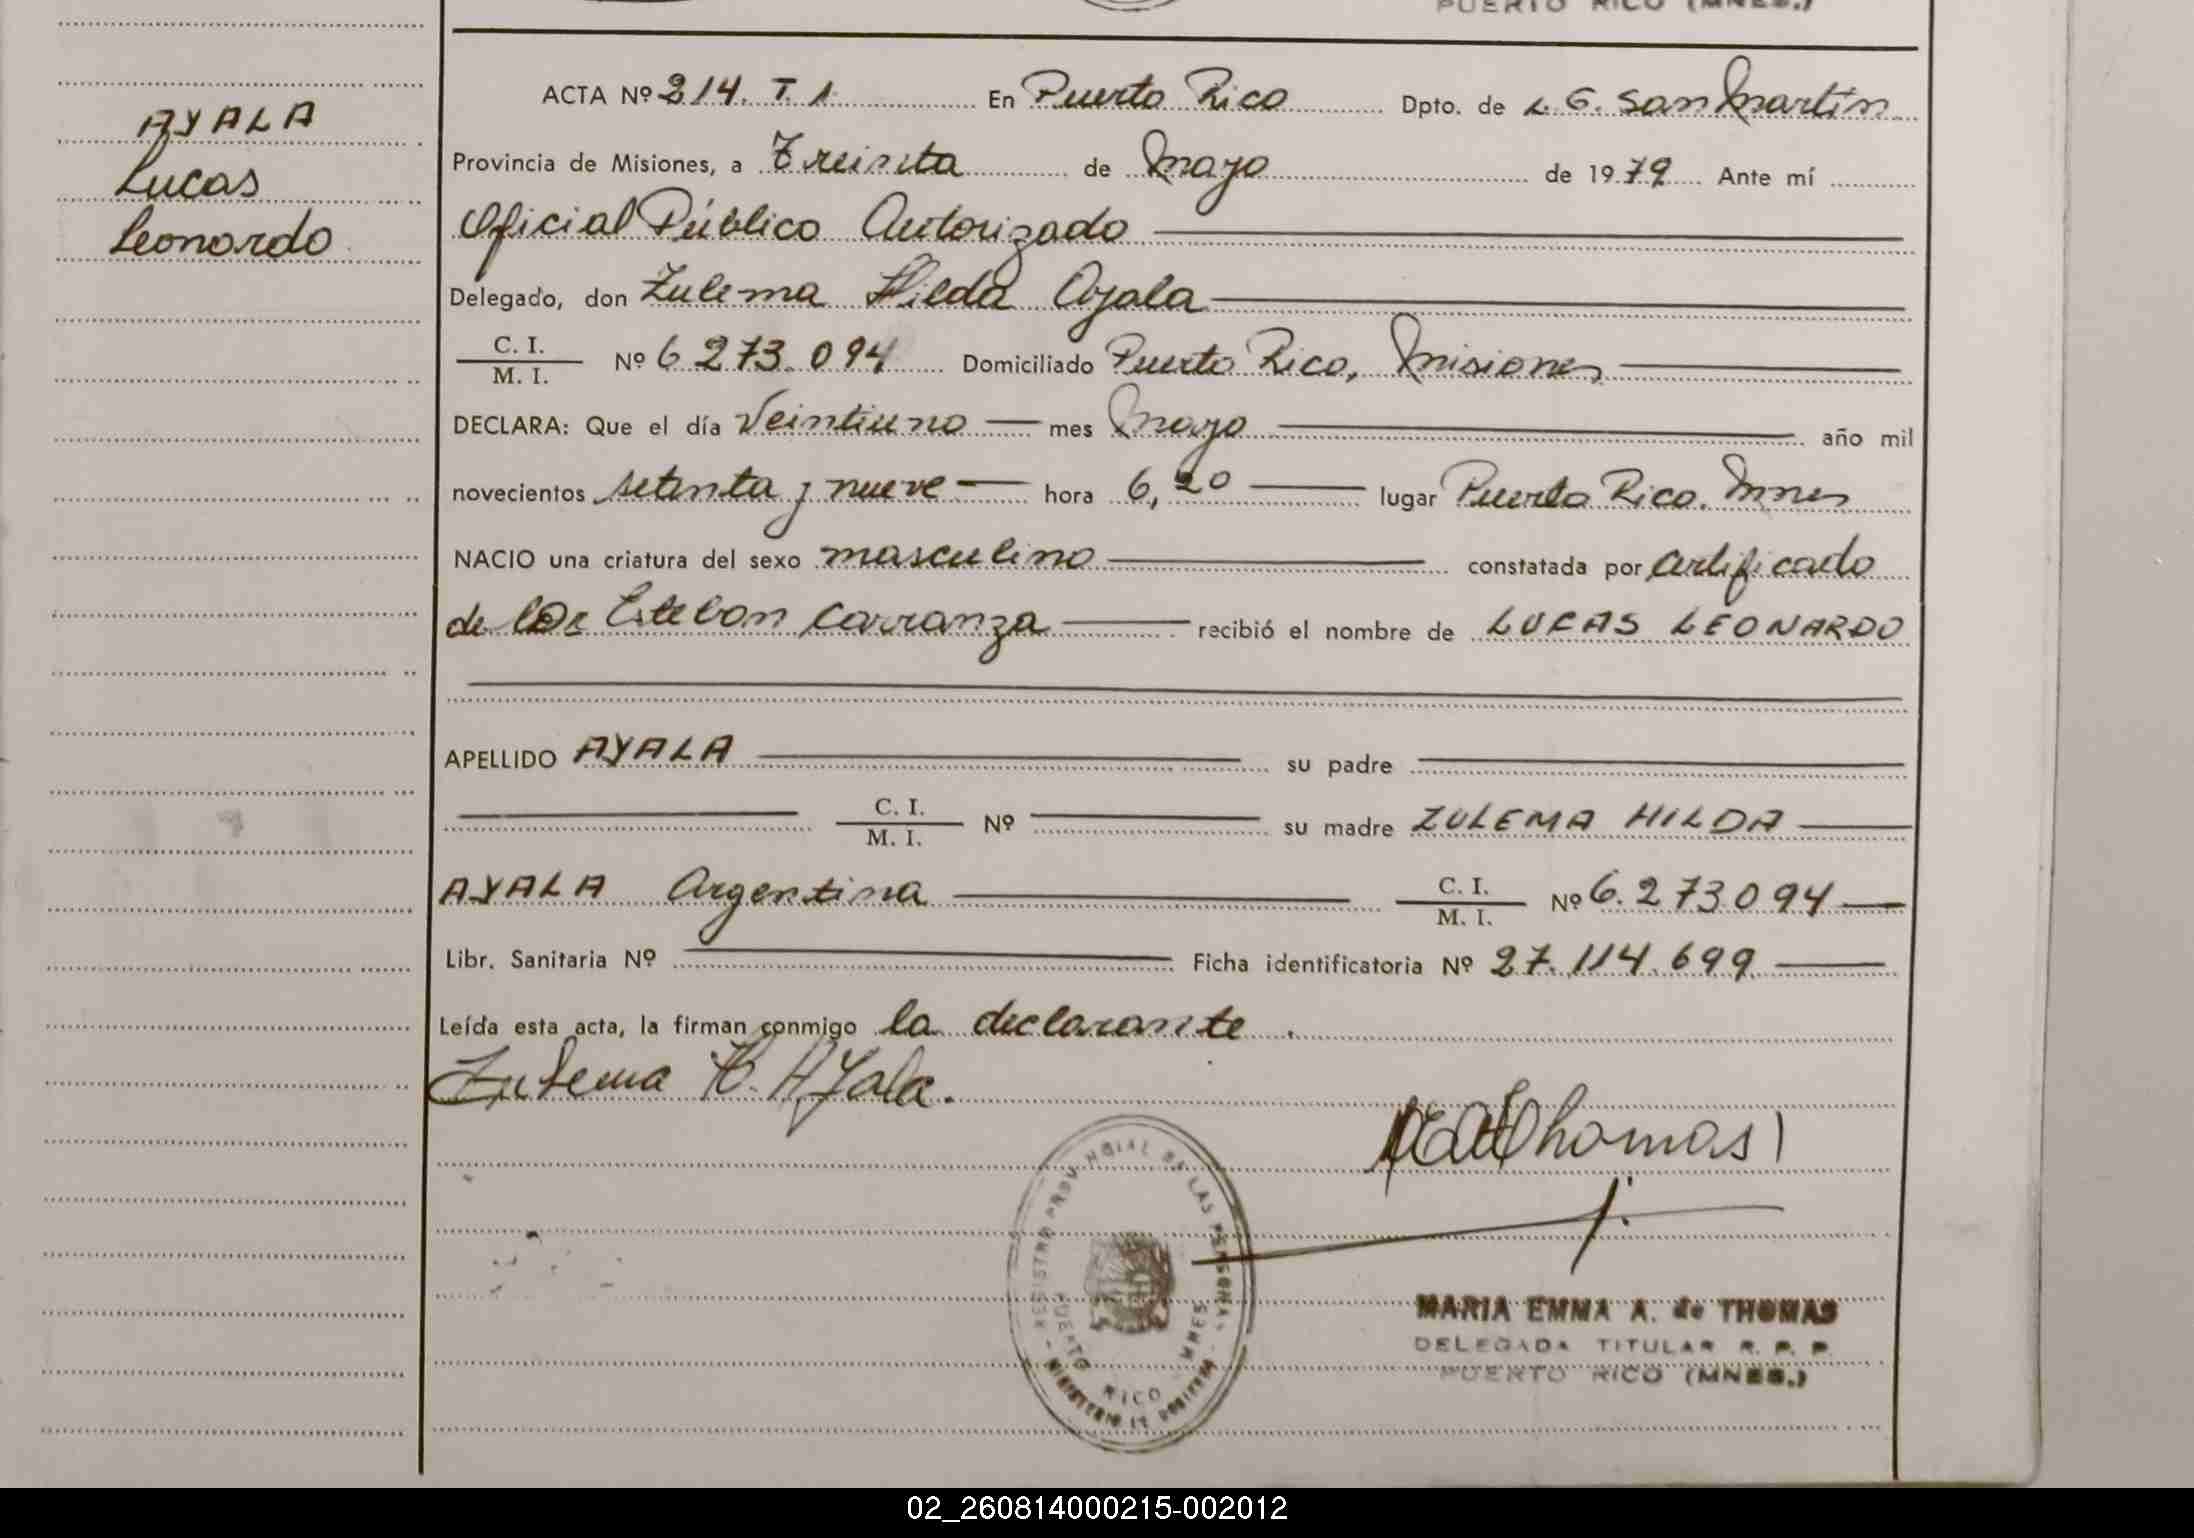 PUERTO RICO (MNES.)
AYALA
Lucas
Leonardo
ACTA Nº 214. T. 1 En Puerto Rico Dpto. de L. G. San Martín
Provincia de Misiones, a Treinta de Mayo de 1979 Ante mí
Oficial Público Autorizado
Delegado, don Zulema Hilda Ayala
C. I.
M. I. Nº 6.273.094 Domiciliado Puerto Rico, Misiones
DECLARA: Que el día Veintiuno mes Mayo año mil
novecientos setenta y nueve hora 6,20 lugar Puerto Rico. Mnes
NACIO una criatura del sexo masculino constatada por certificado
de Esteban Carranza recibió el nombre de LUCAS LEONARDO
APELLIDO AYALA su padre
C. I.
M. I. Nº su madre ZULEMA HILDA
AYALA Argentina C. I.
M. I. Nº 6.273.094
Libr. Sanitaria Nº Ficha identificatoria Nº 27.114.699
Leída esta acta, la firman conmigo la declarante.
Zulema H. Ayala.
Thomas
REGISTRO PROVINCIAL DE LAS PERSONAS
PUERTO RICO MNES
MINISTERIO DE GOBIERNO
MARIA EMMA A. de THOMAS
DELEGADA TITULAR R. P. P.
PUERTO RICO (MNES.)
02_260814000215-002012